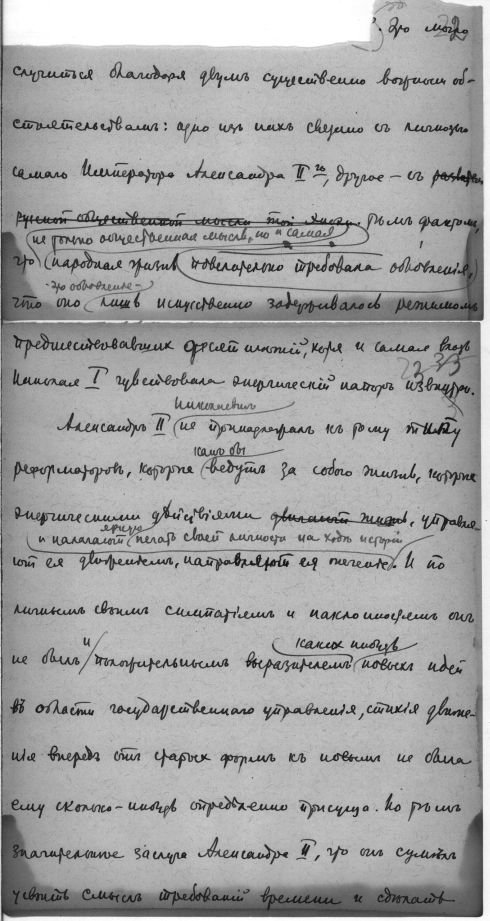 Это могло 32
случиться благодаря двумъ существенно важнымъ об-
стоятельствамъ: одно изъ нихъ связано съ личностью
самаго Императора Александра II го, другое – съ
русской общественной мысли той эпохи. тѣмъ фактомъ,
не только общественная мысль, но и самая
что народная жизнь повелительно требовала обновленія,
это обновленіе
что оно лишь искусственно задерживалось режимомъ
предшествовавшихъ десятилѣтій, когда и самая власть
Николая I чувствовала энергическій напоръ извнутри.
Николаевичъ
Александръ II не принадлежалъ къ тому типу
какъ бы
реформаторовъ, которые ведутъ за собою жизнь, которые
энергическими дѣйствіями, управля-
и налагаютъ яркую печать своей личности на ходъ исторіи
ютъ ея движеніемъ, направляютъ ея теченіе. И по
личнымъ своимъ симпатіямъ и наклонностямъ онъ
и какихъ нибудь
не былъ положительнымъ выразителемъ новыхъ идей
въ области государственнаго управленія, стихія движе-
нія впередъ отъ старыхъ формъ къ новымъ не была
ему сколько-нибудь опредѣленно присуща. Но тѣмъ
значительнѣе заслуга Александра II, что онъ сумѣлъ
усвоить смыслъ требованій времени и сдѣлать